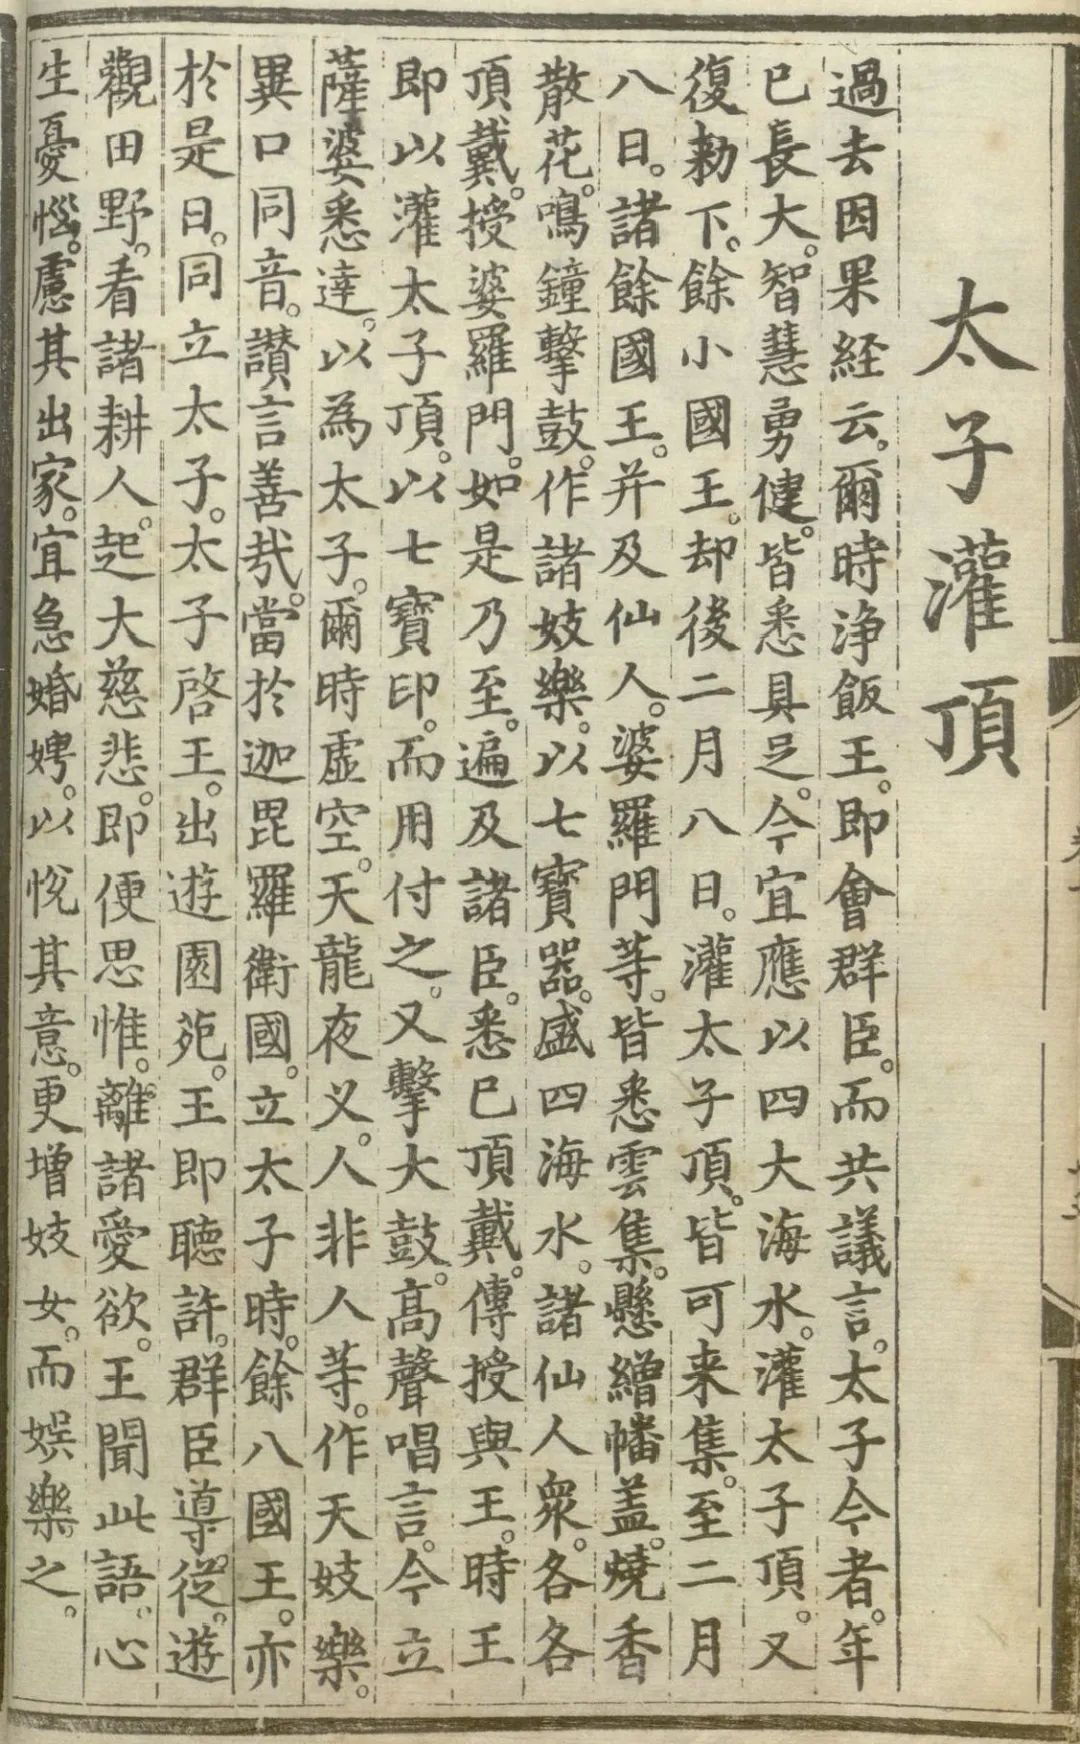 太子灌頂
過去因果経云。爾時淨飯王。即會群臣。而共議言。太子今者。年
已長大。智慧勇健。皆悉具足。今宜應以四大海水。灌太子頂。又
復勅下。餘小國王。却後二月八日。灌太子頂。皆可来集。至二月
八日。諸餘國王。并及仙人。婆羅門等。皆悉雲集。懸繒幡盖。燒香
散花。鳴鐘擊鼓。作諸妓樂。以七寶器。盛四海水。諸仙人衆。各各
頂戴。授婆羅門。如是乃至。遍及諸臣。悉已頂戴。傳授與王。時王
即以灌太子頂。以七寶印。而用付之。又擊大鼓。高聲唱言。今立
薩婆悉達。以為太子。爾時虛空。天龍夜叉。人非人等。作天妓樂。
異口同音。讃言善哉。當於迦毘羅衛國。立太子時。餘八國王。亦
於是日。同立太子。太子啓王。出遊園苑。王即聴許。群臣導從。遊
觀田野。看諸耕人。起大慈悲。即便思惟。離諸愛欲。王聞此語。心
生憂惱。慮其出家。宜急婚娉。以悅其意。更增妓女。而娱樂之。